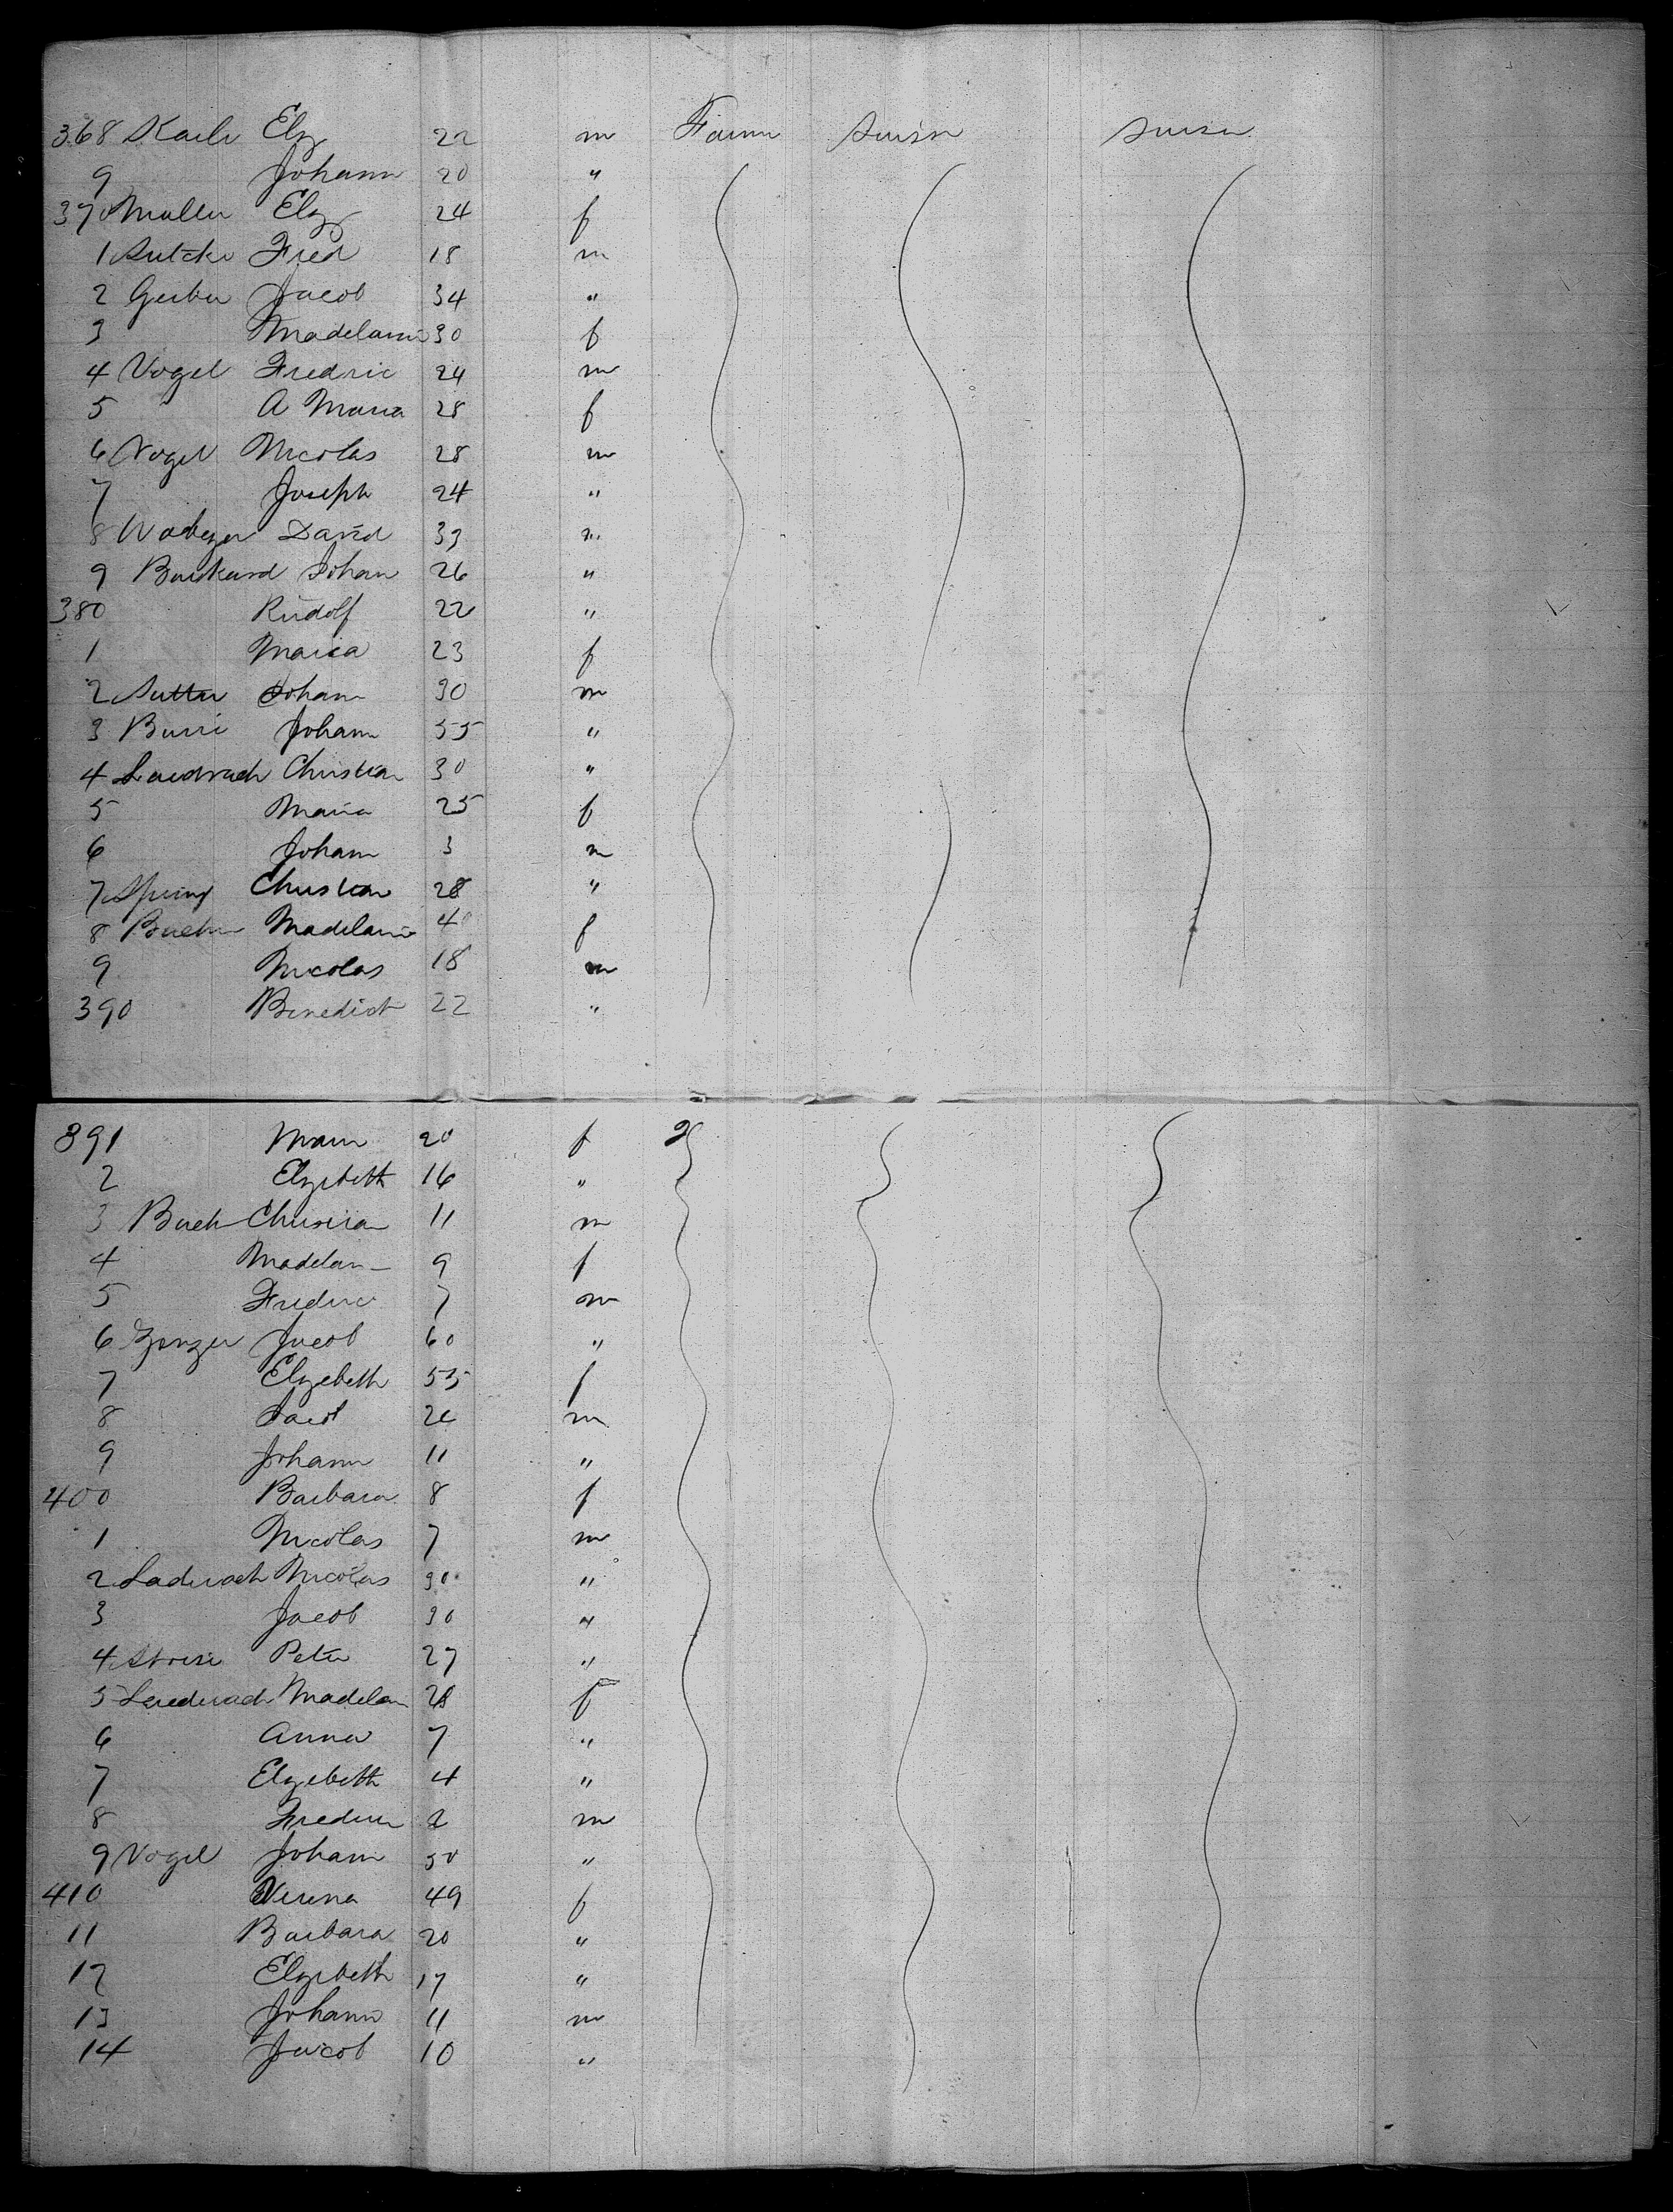 368 Karli Elz 22 m Farmer Suisse Suisse
9 Johann 20 "
370 Muller Elz 24 f
1 Fred 18 m
2 Gerber Jacob 34 "
3 Madelaine 30 f
4 Vogel Fredric 24 m
5 A Maria 28 f
6 Vogel Nicolas 28 m
7 Joseph 24 "
8 David 33 m
9 Burkard Johan 26 "
380 Rudolf 22 "
1 Maria 23 f
2 Sutter Johann 30 m
3 Burri Johann 55 "
4 Christian 30 "
5 Maria 25 f
6 Johann 3 m
7 Spring Christian 28 "
8 Madelaine 40 f
9 Nicolas 18 m
390 Benedict 22 "
391 20 f
2 Elzebeth 16 "
3 Christian 11 m
4 Madelan 9 f
5 Frederic 7 m
6 Jacob 60 "
7 Elzebeth 55 f
8 m
9 Johann 11 "
400 Barbara 8 f
1 Nicolas 7 m
2 Laderach Nicolas 30 "
3 Jacob 30 "
4 Peter 27 "
5 Madelan 28 f
6 Anna 7 "
7 Elzebeth 4 "
8 Frederic 2 m
9 Vogel Johann 50 "
410 Verena 49 f
11 Barbara 20 "
12 Elzebeth 17 "
13 Johann 11 m
14 Jacob 10 "